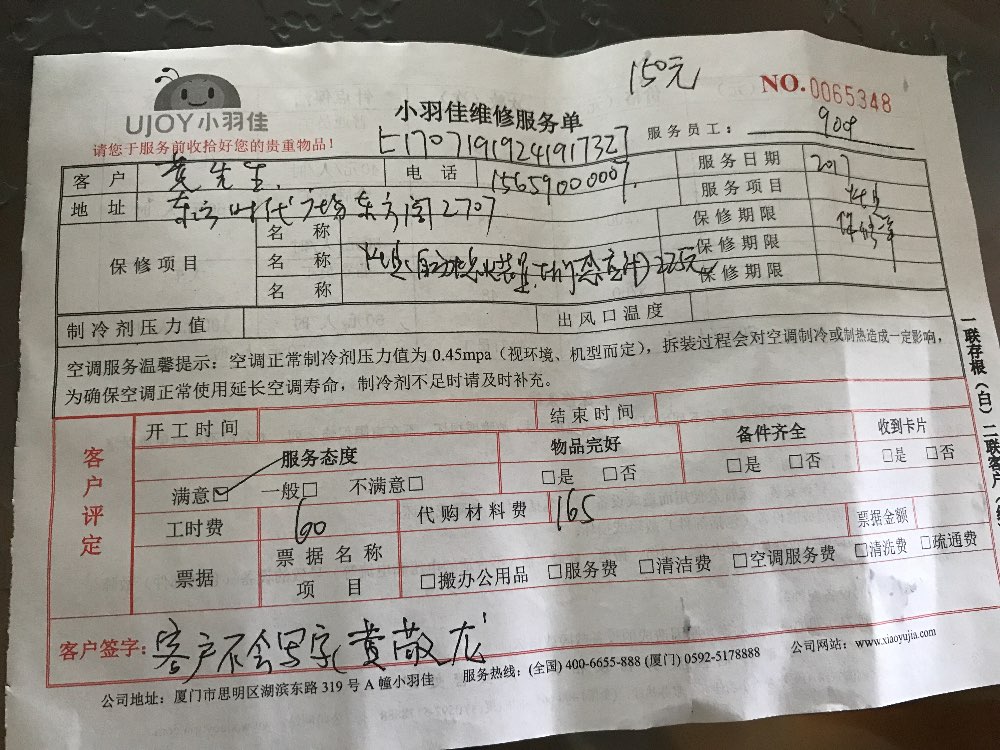 150元
NO.0065348
UJOY小羽佳
小羽佳维修服务单
请您于服务前收拾好您的贵重物品！
E17071919241917327
服务员工： 909
客户 黄先生. 电话 15659000007. 服务日期 2017
地址 东方时代广场东方阁2707 服务项目
保修项目 名称 保修期限
名称 225元 保修期限
名称 保修期限
制冷剂压力值 出风口温度
空调服务温馨提示：空调正常制冷剂压力值为 0.45mpa（视环境、机型而定），拆装过程会对空调制冷或制热造成一定影响，
为确保空调正常使用延长空调寿命，制冷剂不足时请及时补充。
一联存根（白）二联客户
客户评定
开工时间 结束时间
服务态度 物品完好 备件齐全 收到卡片
满意☑ 一般□ 不满意□ □是 □否 □是 □否 □是 □否
工时费 60 代购材料费 165 票据金额
票据 票据名称
项目 □搬办公用品 □服务费 □清洁费 □空调服务费 □清洗费 □疏通费
客户签字： 客户不会写字(黄敬龙
公司地址：厦门市思明区湖滨东路 319 号 A 幢小羽佳 服务热线：(全国) 400-6655-888 (厦门) 0592-5178888 公司网站：www.xiaoyujia.com